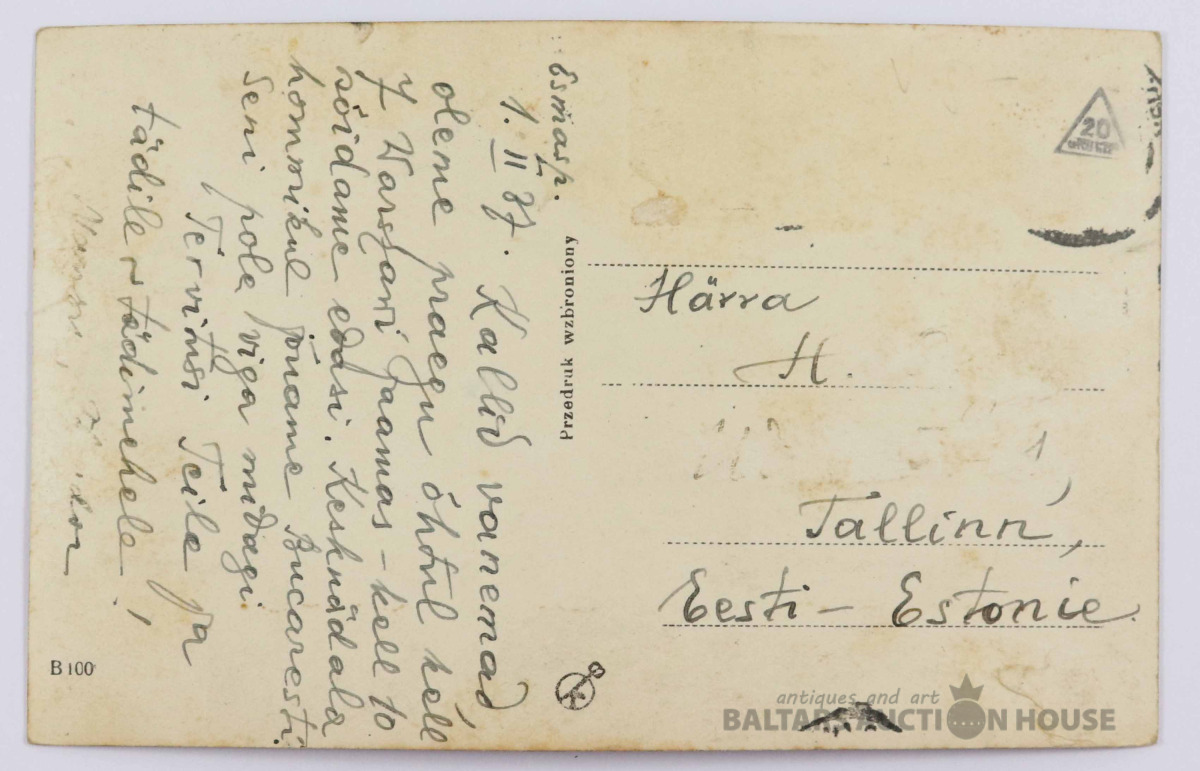 Esmasp.
1. II 37. Kallid vanemad,
oleme praegu õhtul kell
7 Warschawi jaamas – kell 10
sõidame edasi. Kesknädala
hommikul jõuame Bucaresti.
Seni pole viga midagi.
Tervitusi Teile ja
tädile + tädimehele!
Przedruk wzbroniony
20
Härra
H.
Tallinn,
Eesti – Estonie.
B 100
antiques and art
BALTARS AUCTION HOUSE